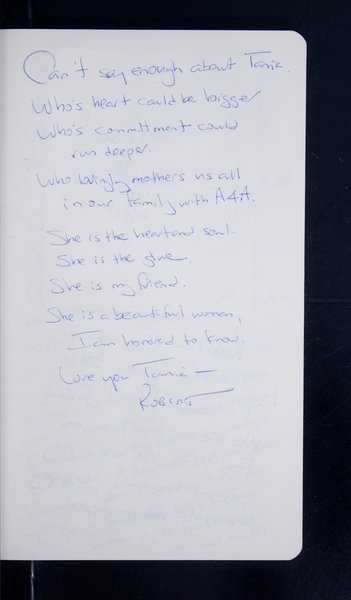 Can't say enough about Tania.
Who's heart could be bigger
Who's committment could
run deeper.
Who lovingly mothers us all
in our family with A4A.
She is the heart and soul.
She is the glue.
She is my friend.
She is a beautiful woman,
I am honored to know.
Love you Tania —
ROBERT